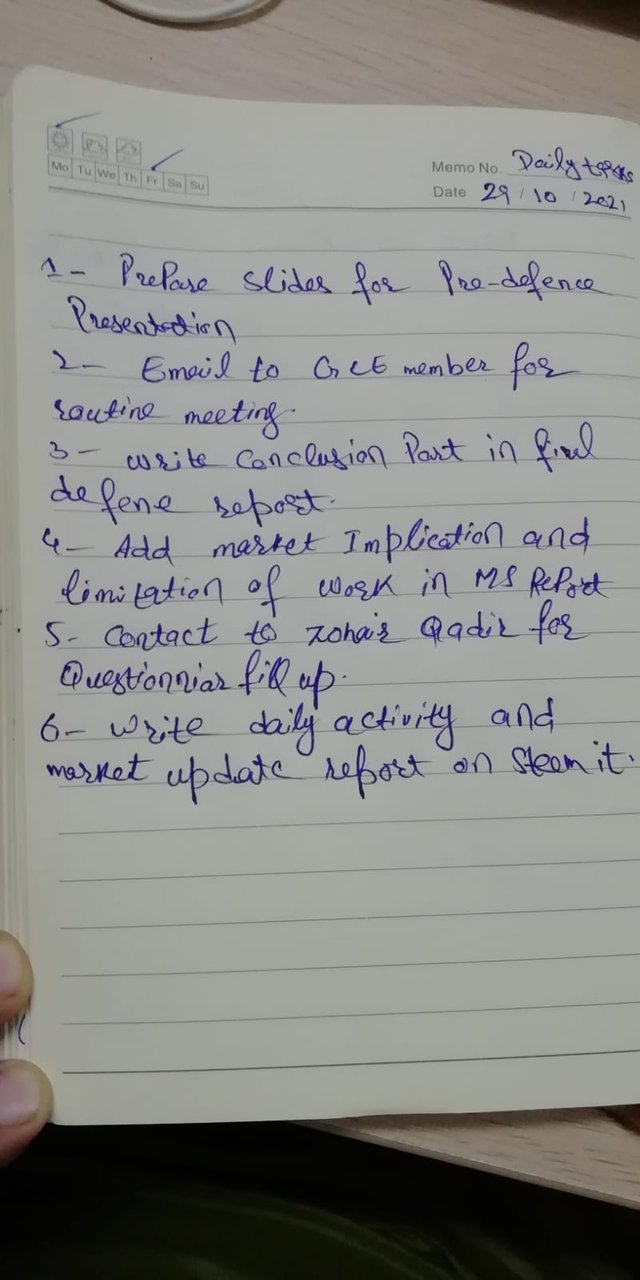 Mo Tu We Th Fr Sa Su
Memo No. Daily tasks
Date 29 / 10 / 2021
1- Prepare slides for Pre-defence
Presentation
2- Email to GCE member for
routine meeting.
3- write Conclusion Part in final
defene report.
4- Add market Implication and
limitation of work in MS Report
5- Contact to zohair Qadir for
Questionniar fill up.
6- Write daily activity and
market update report on Steem it.